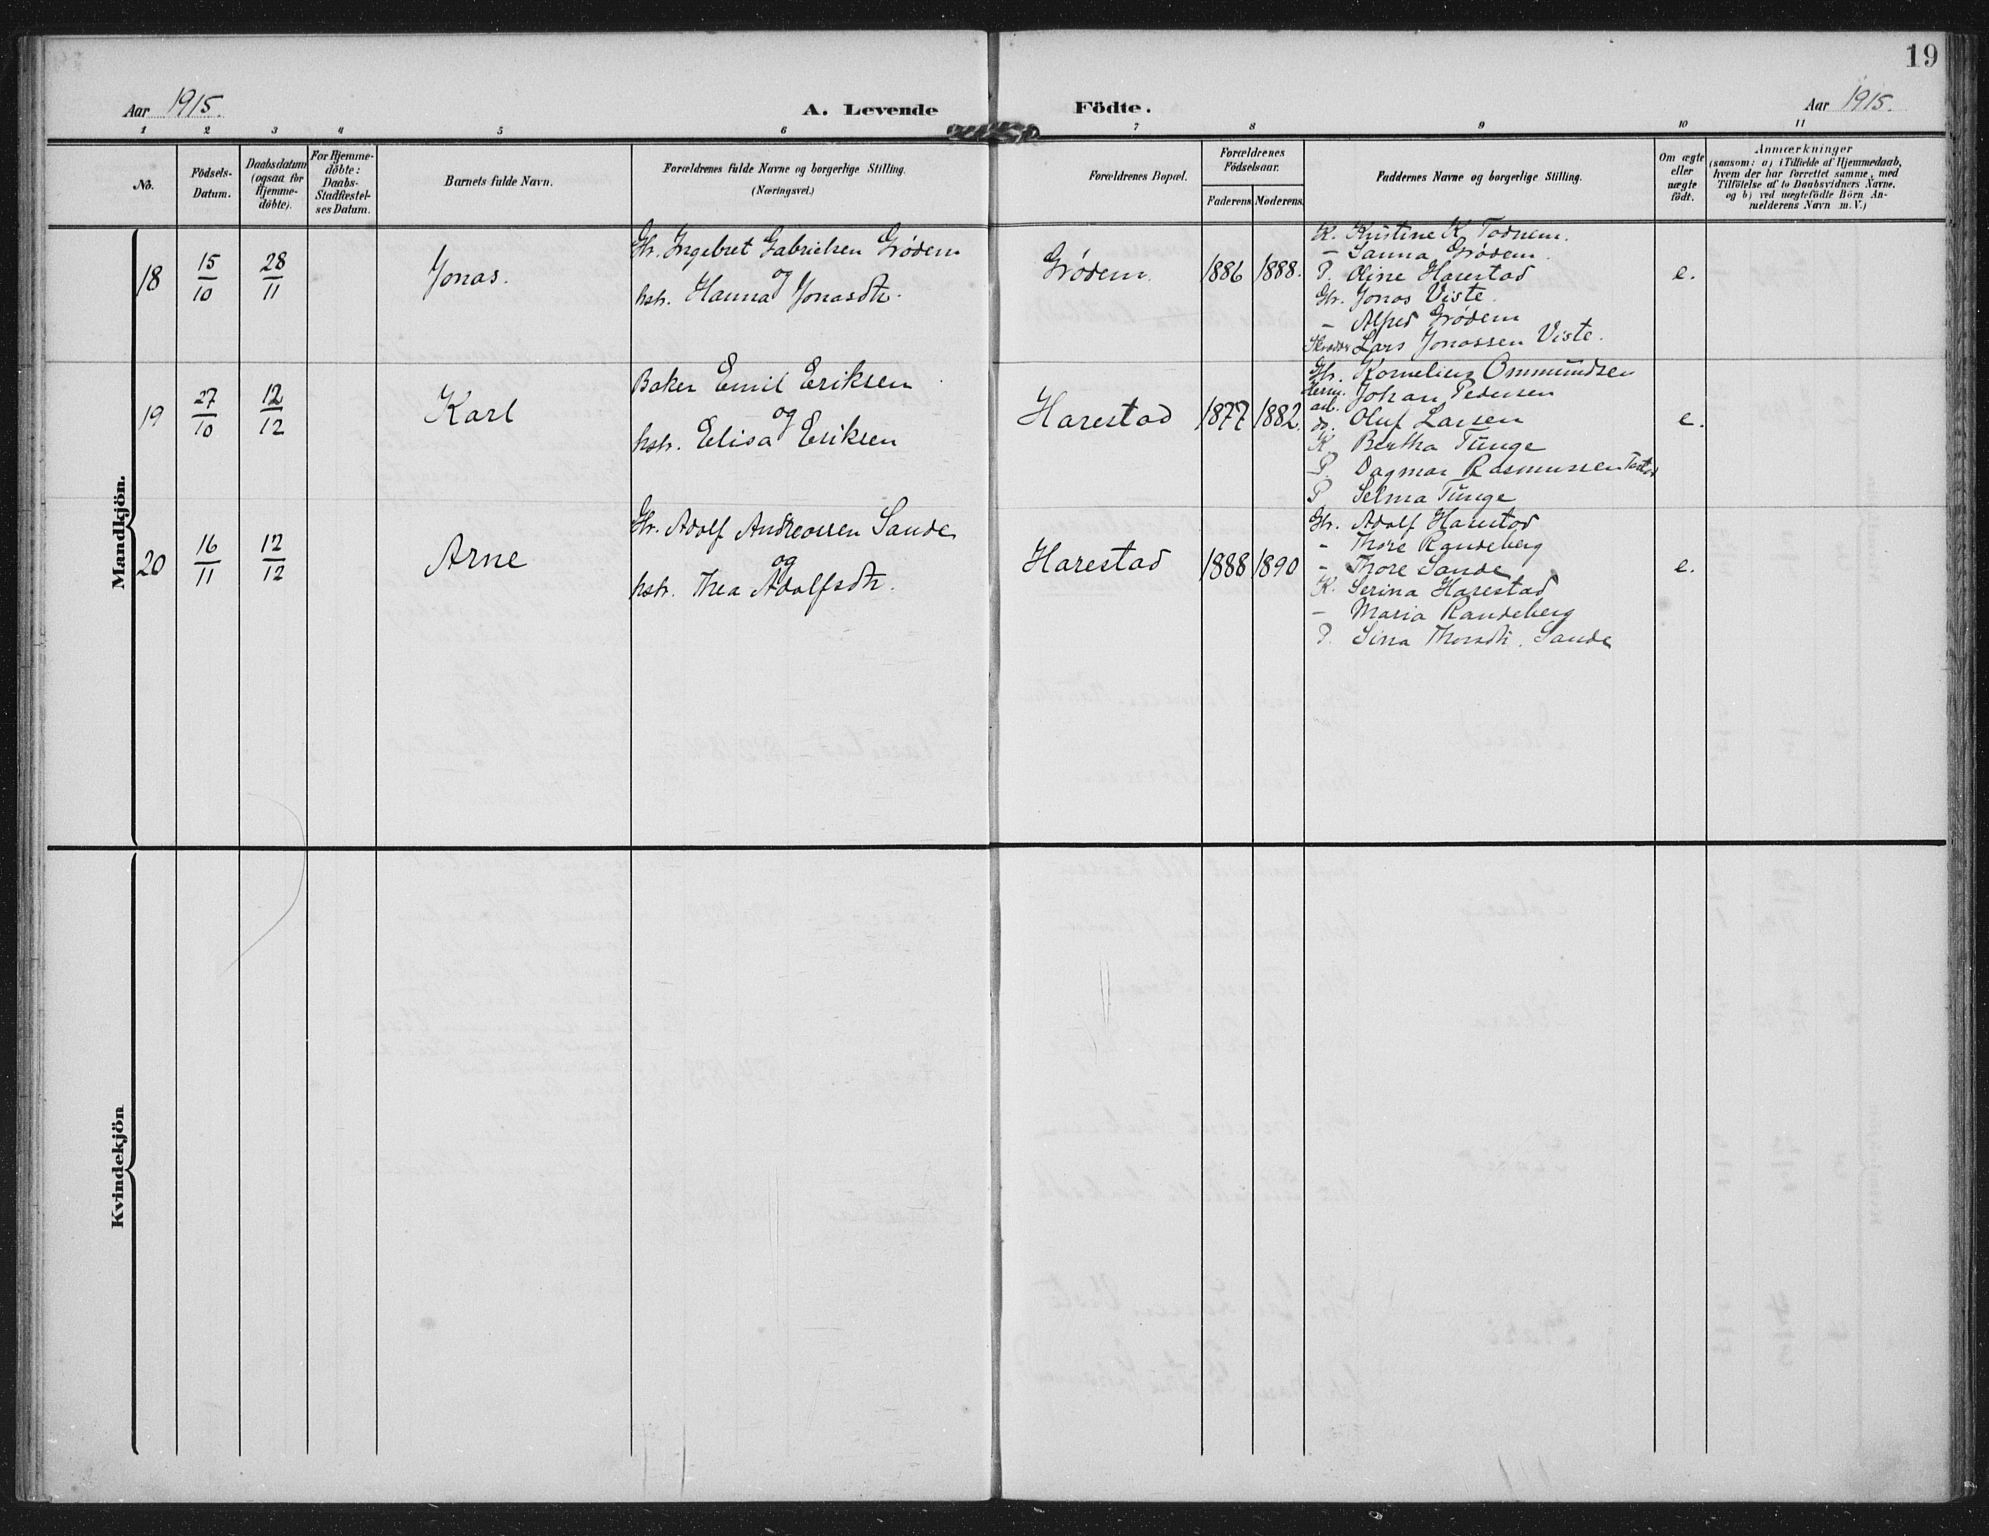 19
Aar 1915.
A. Levende Födte.
Aar 1915.
1 2 3 4 5 6 7 8 9 10 11
No.
Födsels-
Datum.
Daabsdatum
(ogsaa for
Hjemme-
döbte).
For Hjemme-
döbte:
Daabs-
Stadfæstel-
ses Datum.
Barnets fulde Navn.
Forældrenes fulde Navne og borgerlige Stilling.
(Næringsvei.)
Forældrenes Bopæl.
Forældrenes
Födselsaar.
Faderens Moderens.
Faddernes Navne og borgerlige Stilling.
Om ægte
eller
uægte
födt.
Anmærkninger
(saasom: a) i Tilfælde af Hjemmedaab,
hvem der har forrettet samme, med
Tilföielse af to Daabsvidners Navne,
og b) ved uægtefödte Börn An-
melderens Navn m. V.)
Mandkjön.
18 15/10 28/11 Jonas.
Gbr. Ingebret Gabrielsen Grødem
og
hstr. Hanna Jonasdtr.
Grødem 1886 1888.
K. Kristine K. Todnem.
– Sanna Grødem.
P. Oline Harestad
Gbr. Jonas Viste.
– Alfred Grødem
Skrædder Lars Jonassen Viste.
e.
19 27/10 12/12 Karl
Baker Emil Eriksen
og
hstr. Elisa Eriksen
Harestad 1877 1882.
Gbr. Kornelius Ommundsen
Herm. arb. Johan Pedersen
do. Oluf Larsen
K. Bertha Tunge
P. Dagmar Rasmussen Tasta
P. Selma Tunge
e.
20 16/11 12/12 Arne
Gbr. Adolf Andreassen Sande
og
hstr. Thea Adolfsdtr.
Harestad 1888 1890
Gbr. Adolf Harestad
– Thore Randeberg
– Thore Sande
K. Serina Harestad
– Maria Randeberg
P. Sina Thorsdtr. Sande
e.
Kvindekjön